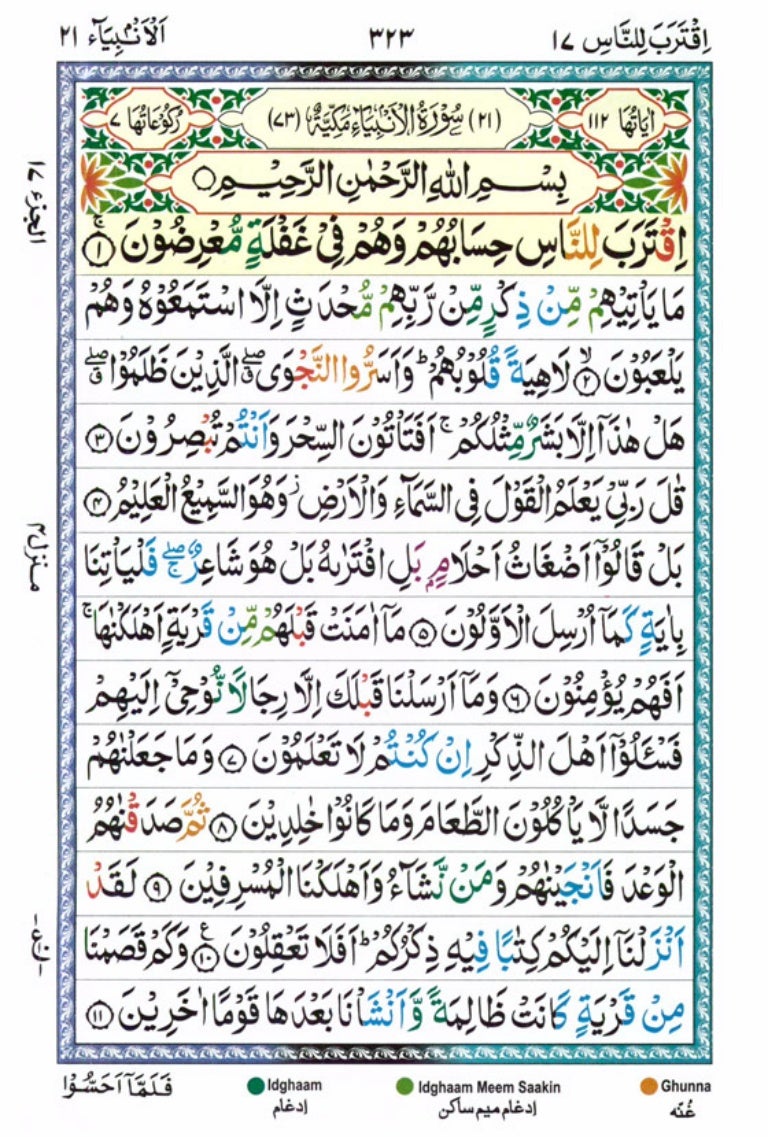 اِقْتَرَبَ لِلنَّاسِ ١٧
٣٢٣
اَلْاَنْۢبِيَآء ٢١
اٰيَاتُهَا ١١٢
(٢١) سُوْرَةُ الْاَنْۢبِيَآءِ مَكِّيَّةٌ (٧٣)
رُكُوْعَاتُهَا ٧
بِسْمِ اللّٰهِ الرَّحْمٰنِ الرَّحِيْمِ
اِقْتَرَبَ لِلنَّاسِ حِسَابُهُمْ وَهُمْ فِيْ غَفْلَةٍ مُّعْرِضُوْنَ ۚ ١
مَا يَاْتِيْهِمْ مِّنْ ذِكْرٍ مِّنْ رَّبِّهِمْ مُّحْدَثٍ اِلَّا اسْتَمَعُوْهُ وَهُمْ
يَلْعَبُوْنَ ۙ ٢ لَاهِيَةً قُلُوْبُهُمْ ؕ وَاَسَرُّوا النَّجْوَى ۖۗ الَّذِيْنَ ظَلَمُوْا ۖۗ
هَلْ هٰذَآ اِلَّا بَشَرٌ مِّثْلُكُمْ ۚ اَفَتَاْتُوْنَ السِّحْرَ وَاَنْتُمْ تُبْصِرُوْنَ ٣
قٰلَ رَبِّيْ يَعْلَمُ الْقَوْلَ فِي السَّمَآءِ وَالْاَرْضِ ز وَهُوَ السَّمِيْعُ الْعَلِيْمُ ٤
بَلْ قَالُوْٓا اَضْغَاثُ اَحْلَامٍۭ بَلِ افْتَرٰىهُ بَلْ هُوَ شَاعِرٌ ۖۚ فَلْيَاْتِنَا
بِاٰيَةٍ كَمَآ اُرْسِلَ الْاَوَّلُوْنَ ٥ مَآ اٰمَنَتْ قَبْلَهُمْ مِّنْ قَرْيَةٍ اَهْلَكْنٰهَا ۚ
اَفَهُمْ يُؤْمِنُوْنَ ٦ وَمَآ اَرْسَلْنَا قَبْلَكَ اِلَّا رِجَالًا نُّوْحِيْٓ اِلَيْهِمْ
فَسْـَٔلُوْٓا اَهْلَ الذِّكْرِ اِنْ كُنْتُمْ لَا تَعْلَمُوْنَ ٧ وَمَا جَعَلْنٰهُمْ
جَسَدًا لَّا يَاْكُلُوْنَ الطَّعَامَ وَمَا كَانُوْا خٰلِدِيْنَ ٨ ثُمَّ صَدَقْنٰهُمُ
الْوَعْدَ فَاَنْجَيْنٰهُمْ وَمَنْ نَّشَآءُ وَاَهْلَكْنَا الْمُسْرِفِيْنَ ٩ لَقَدْ
اَنْزَلْنَآ اِلَيْكُمْ كِتٰبًا فِيْهِ ذِكْرُكُمْ ؕ اَفَلَا تَعْقِلُوْنَ ١٠ ع وَكَمْ قَصَمْنَا
مِنْ قَرْيَةٍ كَانَتْ ظَالِمَةً وَّاَنْشَاْنَا بَعْدَهَا قَوْمًا اٰخَرِيْنَ ١١
الجزء ١٧
منزل ٤
فَلَمَّآ اَحَسُّوْا
Idghaam
ادغام
Idghaam Meem Saakin
ادغام میم ساکن
Ghunna
غنّه